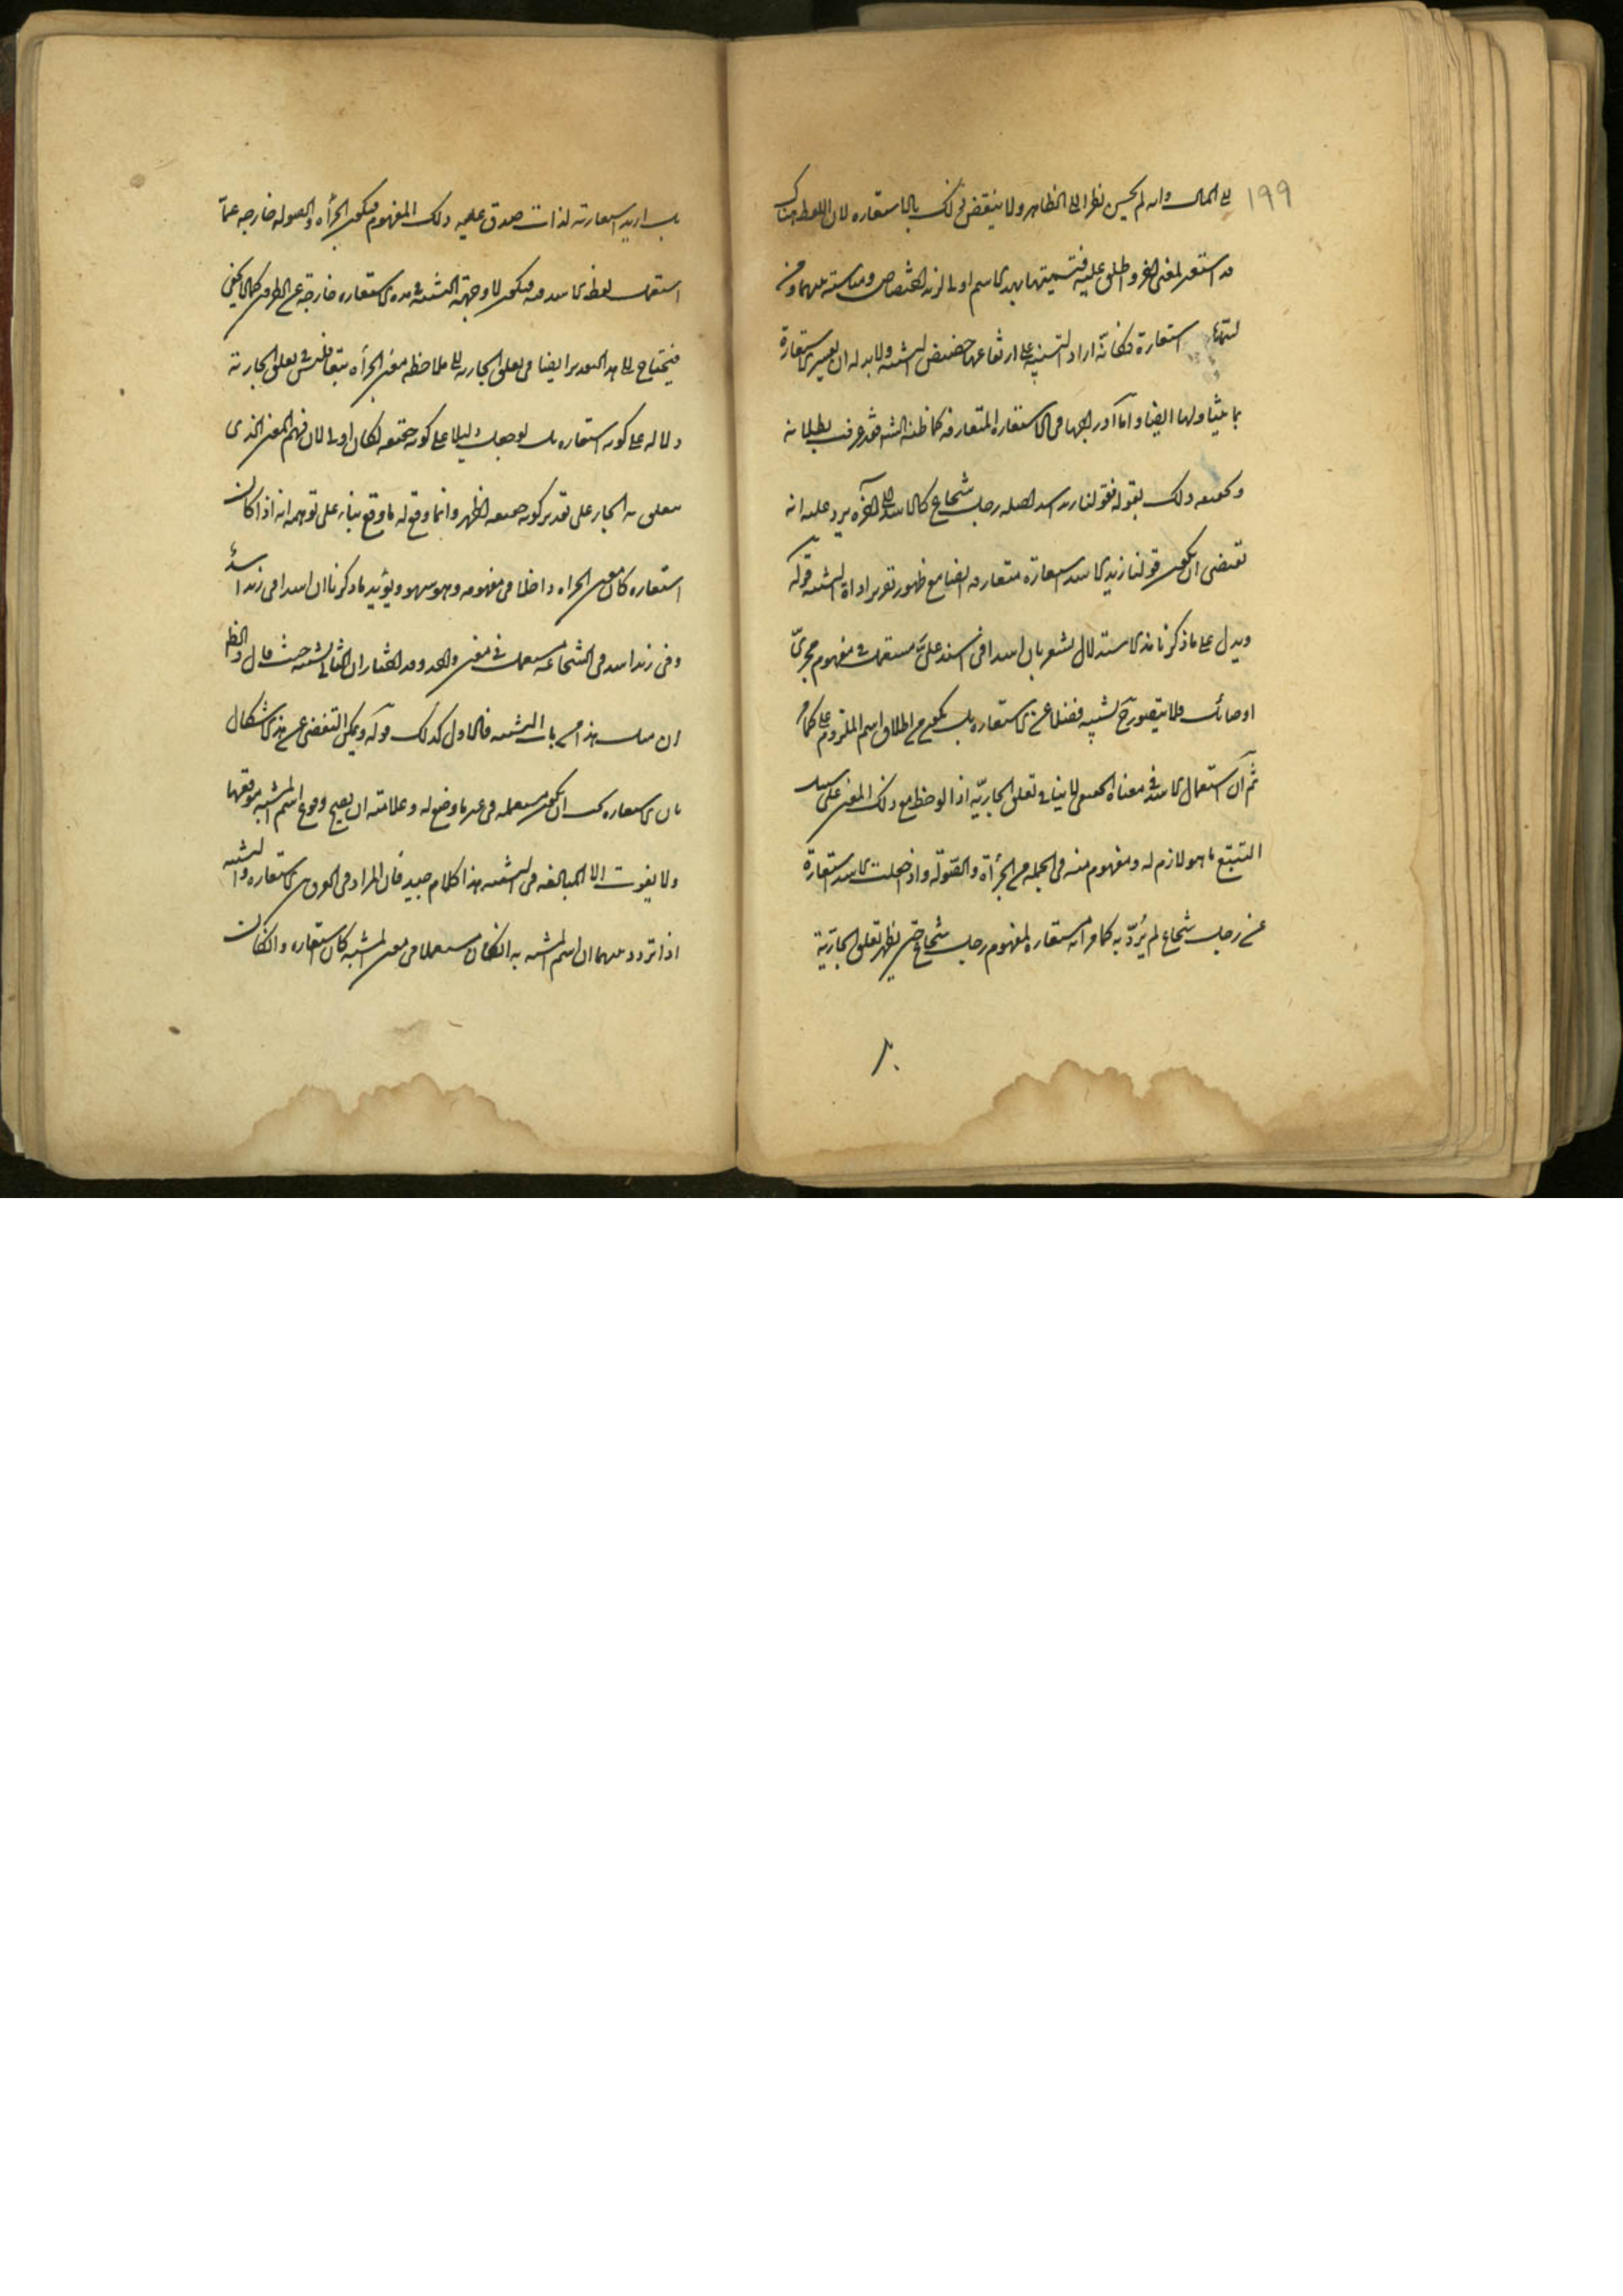 ١٩٩
الى المآل وان لم يحسن نظرا الى الظاهر ولا ينتقض ذلك بالاستعارة لان اللفظ هناك
قد استعير لمعنى آخر واطلق عليه فتسميتها بهذا الاسم اولى لزيد اختصاص ومناسبة بينهما ومن
استعارة فكانه اراد التنبيه على ارتفاعها عن حضيض التشبيه ولا بد له ان يفسر الاستعارة
بما يتناولها ايضا واما اندراجها في الاستعارة المتعارفة كما ظنه الشه فقد عرفت بطلانه
وتحقيقه ذلك بقوله فقولنا زيد اسد اصله رجل شجاع كالاسد الى آخره يرد عليه انه
يقتضى ان يكون قولنا زيد كالاسد استعارة متعارفة ايضا مع ظهور تقدير اداة التشبيه قوله
ويدل على ما ذكرنا هذا الاستدلال يشعر بان اسدا في اسد علىّ مستعمل في مفهوم مجرئ
او صائل فلا يتصور ح تشبيه فضلا عن الاستعارة بل يكون من اطلاق اسم الملزوم على
ثم ان استعمال الاسد في معناه الحقيقي لا ينافى تعلق الجار به اذا لوحظ مع ذلك المعنى على سبيل
التتبع ما هو لازم له ومفهوم منه في الجملة من الجرأة والصولة واذا جعلت الاسد استعارة
عن رجل شجاع لم يُردّ به كما مر انه استعارة لمفهوم رجل شجاع حتى يظهر تعلق الجار به
بل اريد استعارته لذات صدق عليه ذلك المفهوم فيكون الجرأة والصولة خارجة عما
استعمل لفظ الاسد فيه فيكون لا وجهة التشبيه في هذه الاستعارة خارجة عن الطرفين كما لا يخفى
فيحتاج على هذا التقدير ايضا في تعلق الجار به الى ملاحظة معنى الجرأة تبعا فليس في تعلق الجار به
دلالة على كونه استعارة بل لو جعل دليلا على كونه حقيقة لكان اولى لان فهم المعنى الذى
يتعلق به الجار على تقدير كونه حقيقة اظهر وانما وقع له ما وقع بناء على توهمه انه اذا كان
استعارة كان معنى الجرأة داخلا في مفهومه وهو سهو ويؤيد ما ذكرنا ان اسدا في زيد اسد
وفي زيد اسد في الشجاعة مستعمل في معنى واحد وقد اختار ان الثاني تشبيه حيث قال والظ
ان مثل هذا من باب التشبيه فالاول كذلك قوله ويمكن التفصى عن هذا الاشكال
بان الاستعارة يجب ان يكون مستعملة في غير ما وضع له وعلامته ان يصح وقوع اسم المشبه موقعها
ولا يفوت الا المبالغة في التشبيه هذا كلام جيد فان المراد في الفرق بين الاستعارة والتشبيه
اذا تردد بينهما ان اسم المشبه به ان كان مستعملا في معنى المشبه كان استعارة وان كان